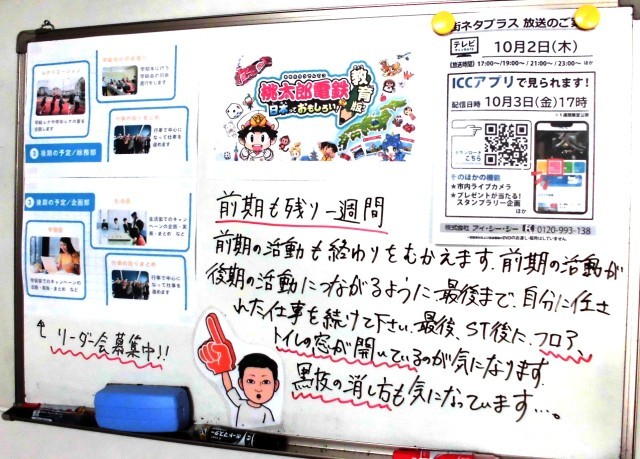 3 後期の予定/総務部
行事で中心に
なって仕事を
進めます
3 後期の予定/企画部
行事で中心に
なって仕事を
進めます
↑
リーダー会募集中!!
桃太郎電鉄
教育版
日本っておもしろい!
街ネタプラス 放送のご案
テレビ
10月2日(木)
(放送時間) 17:00~/19:00~/21:00~/23:00~ ほか
ICCアプリで見られます!
配信日時 10月3日(金)17時
ダウンロード
こちら
そのほかの機能
★市内ライブカメラ
★プレゼントが当たる!
スタンプラリー企画
ほか
株式会社 アイ・シー・シー 0120-993-138
前期も残り一週間
前期の活動も終わりをむかえます。前期の活動が
後期の活動につながるように最後まで、自分に任さ
れた仕事を続けて下さい。最後、ST後に、フロア、
トイレの窓が開いているのが気になります。
黒板の消し方も気になっています…。